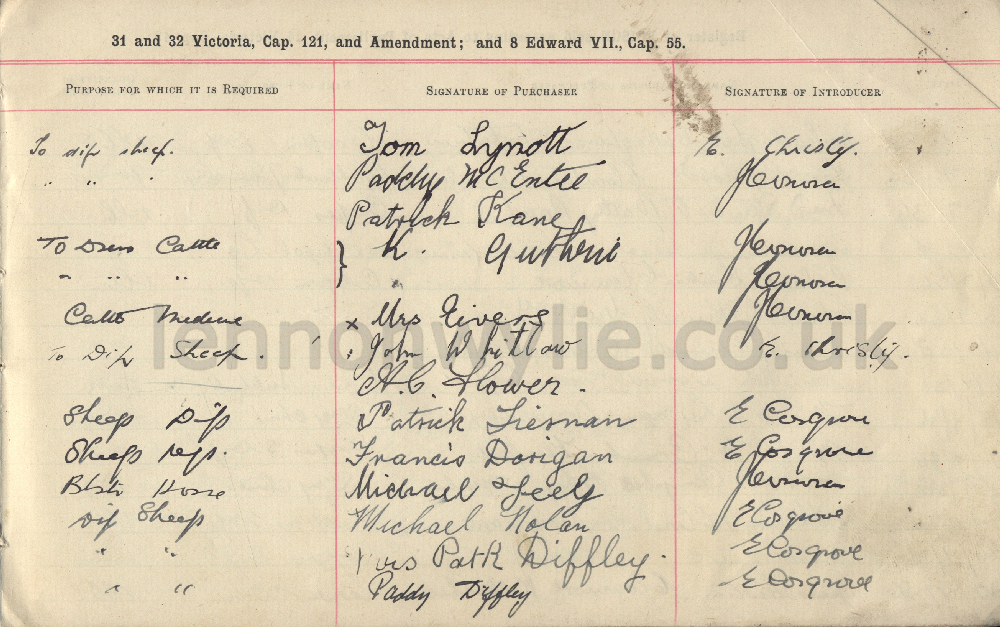 31 and 32 Victoria, Cap. 121, and Amendment; and 8 Edward VII., Cap. 55.
PURPOSE FOR WHICH IT IS REQUIRED SIGNATURE OF PURCHASER SIGNATURE OF INTRODUCER
To dip sheep. Tom Lynott E. Christy.
" " " Paddy McEntee
Patrick Kane
To Dress Cattle } K. Guthrie
" " "
Cattle Medicine x Mrs Eivers
To Dip Sheep. John Whitlaw E. Christy.
A.C. Flower.
Sheep Dip Patrick Tiernan E Cosgrove
Sheep Francis Dorigan E Cosgrove
Horse Michael Feely
Dip Sheep Michael Nolan E Cosgrove
" " Mrs Patk Diffley. E Cosgrove
" " Paddy Diffley E Cosgrove
lennonwylie.co.uk